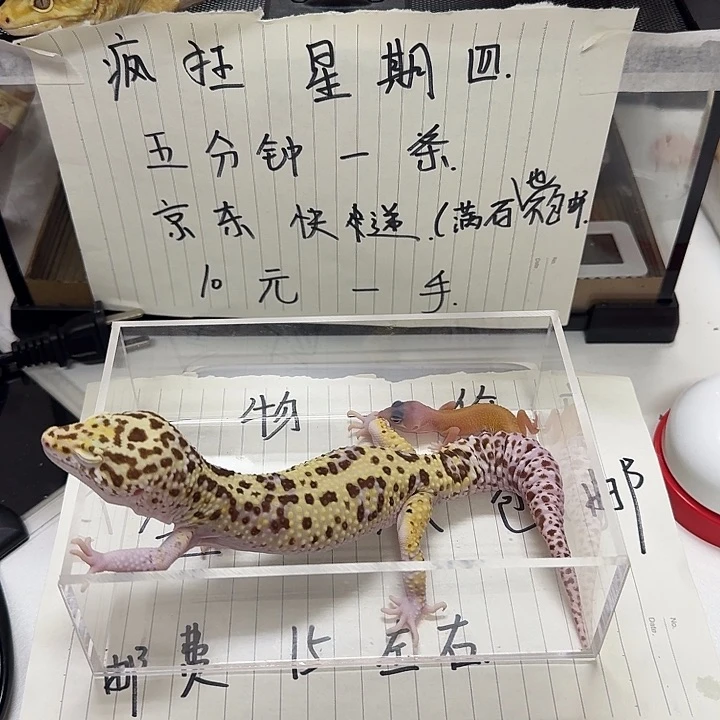 疯狂 星期四.
五分钟一条.
京东 快递.(满百也包邮.
10元一手.
物 价
包邮
邮费 15 左右.